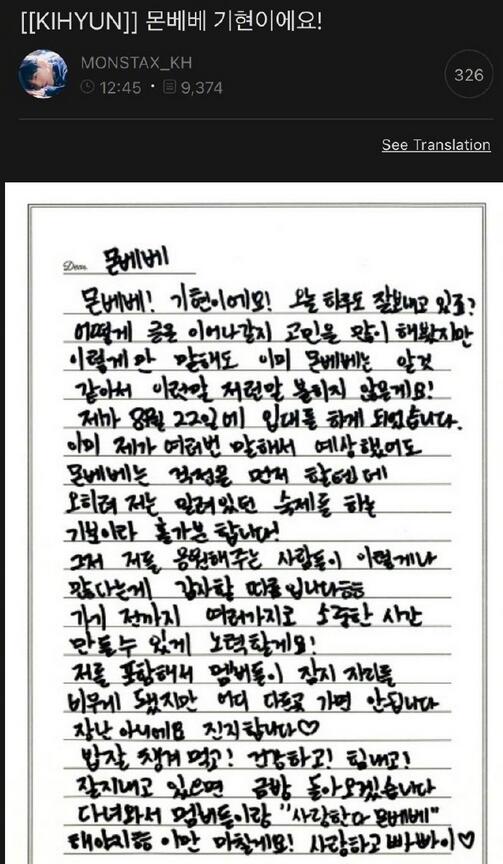 [[KIHYUN]] 몬베베 기현이에요!
MONSTAX_KH
12:45 · 9,374
326
See Translation
Dear. 몬베베
몬베베! 기현이에요! 오늘 하루도 잘보내고 있죠?
어떻게 글을 이어나갈지 고민을 많이 해봤지만
이렇게만 말해도 이미 몬베베는 알것
같아서 이런말 저런말 붙이지 않을게요!
제가 8월 22일에 입대를 하게 되었습니다.
이미 제가 여러번 말해서 예상했어도
몬베베는 걱정을 먼저 할텐데
오히려 저는 밀려있던 숙제를 하는
기분이라 홀가분 합니다!
그저 저를 응원해주는 사람들이 이렇게나
많다는게 감사할 따름입니다ㅎㅎ
가기 전까지 여러가지로 소중한 시간
만들수 있게 노력할게요!
저를 포함해서 멤버들이 잠시 자리를
비우게 됐지만 어디 다른곳 가면 안됩니다
장난 아니에요 진지합니다♡
밥잘 챙겨 먹고! 건강하고! 힘내고!
잘지내고 있으면 금방 돌아오겠습니다
다녀와서 멤버들이랑 "사랑한다 몬베베"
해야지ㅎㅎ 이만 마칠게요! 사랑하고 빠빠이♡